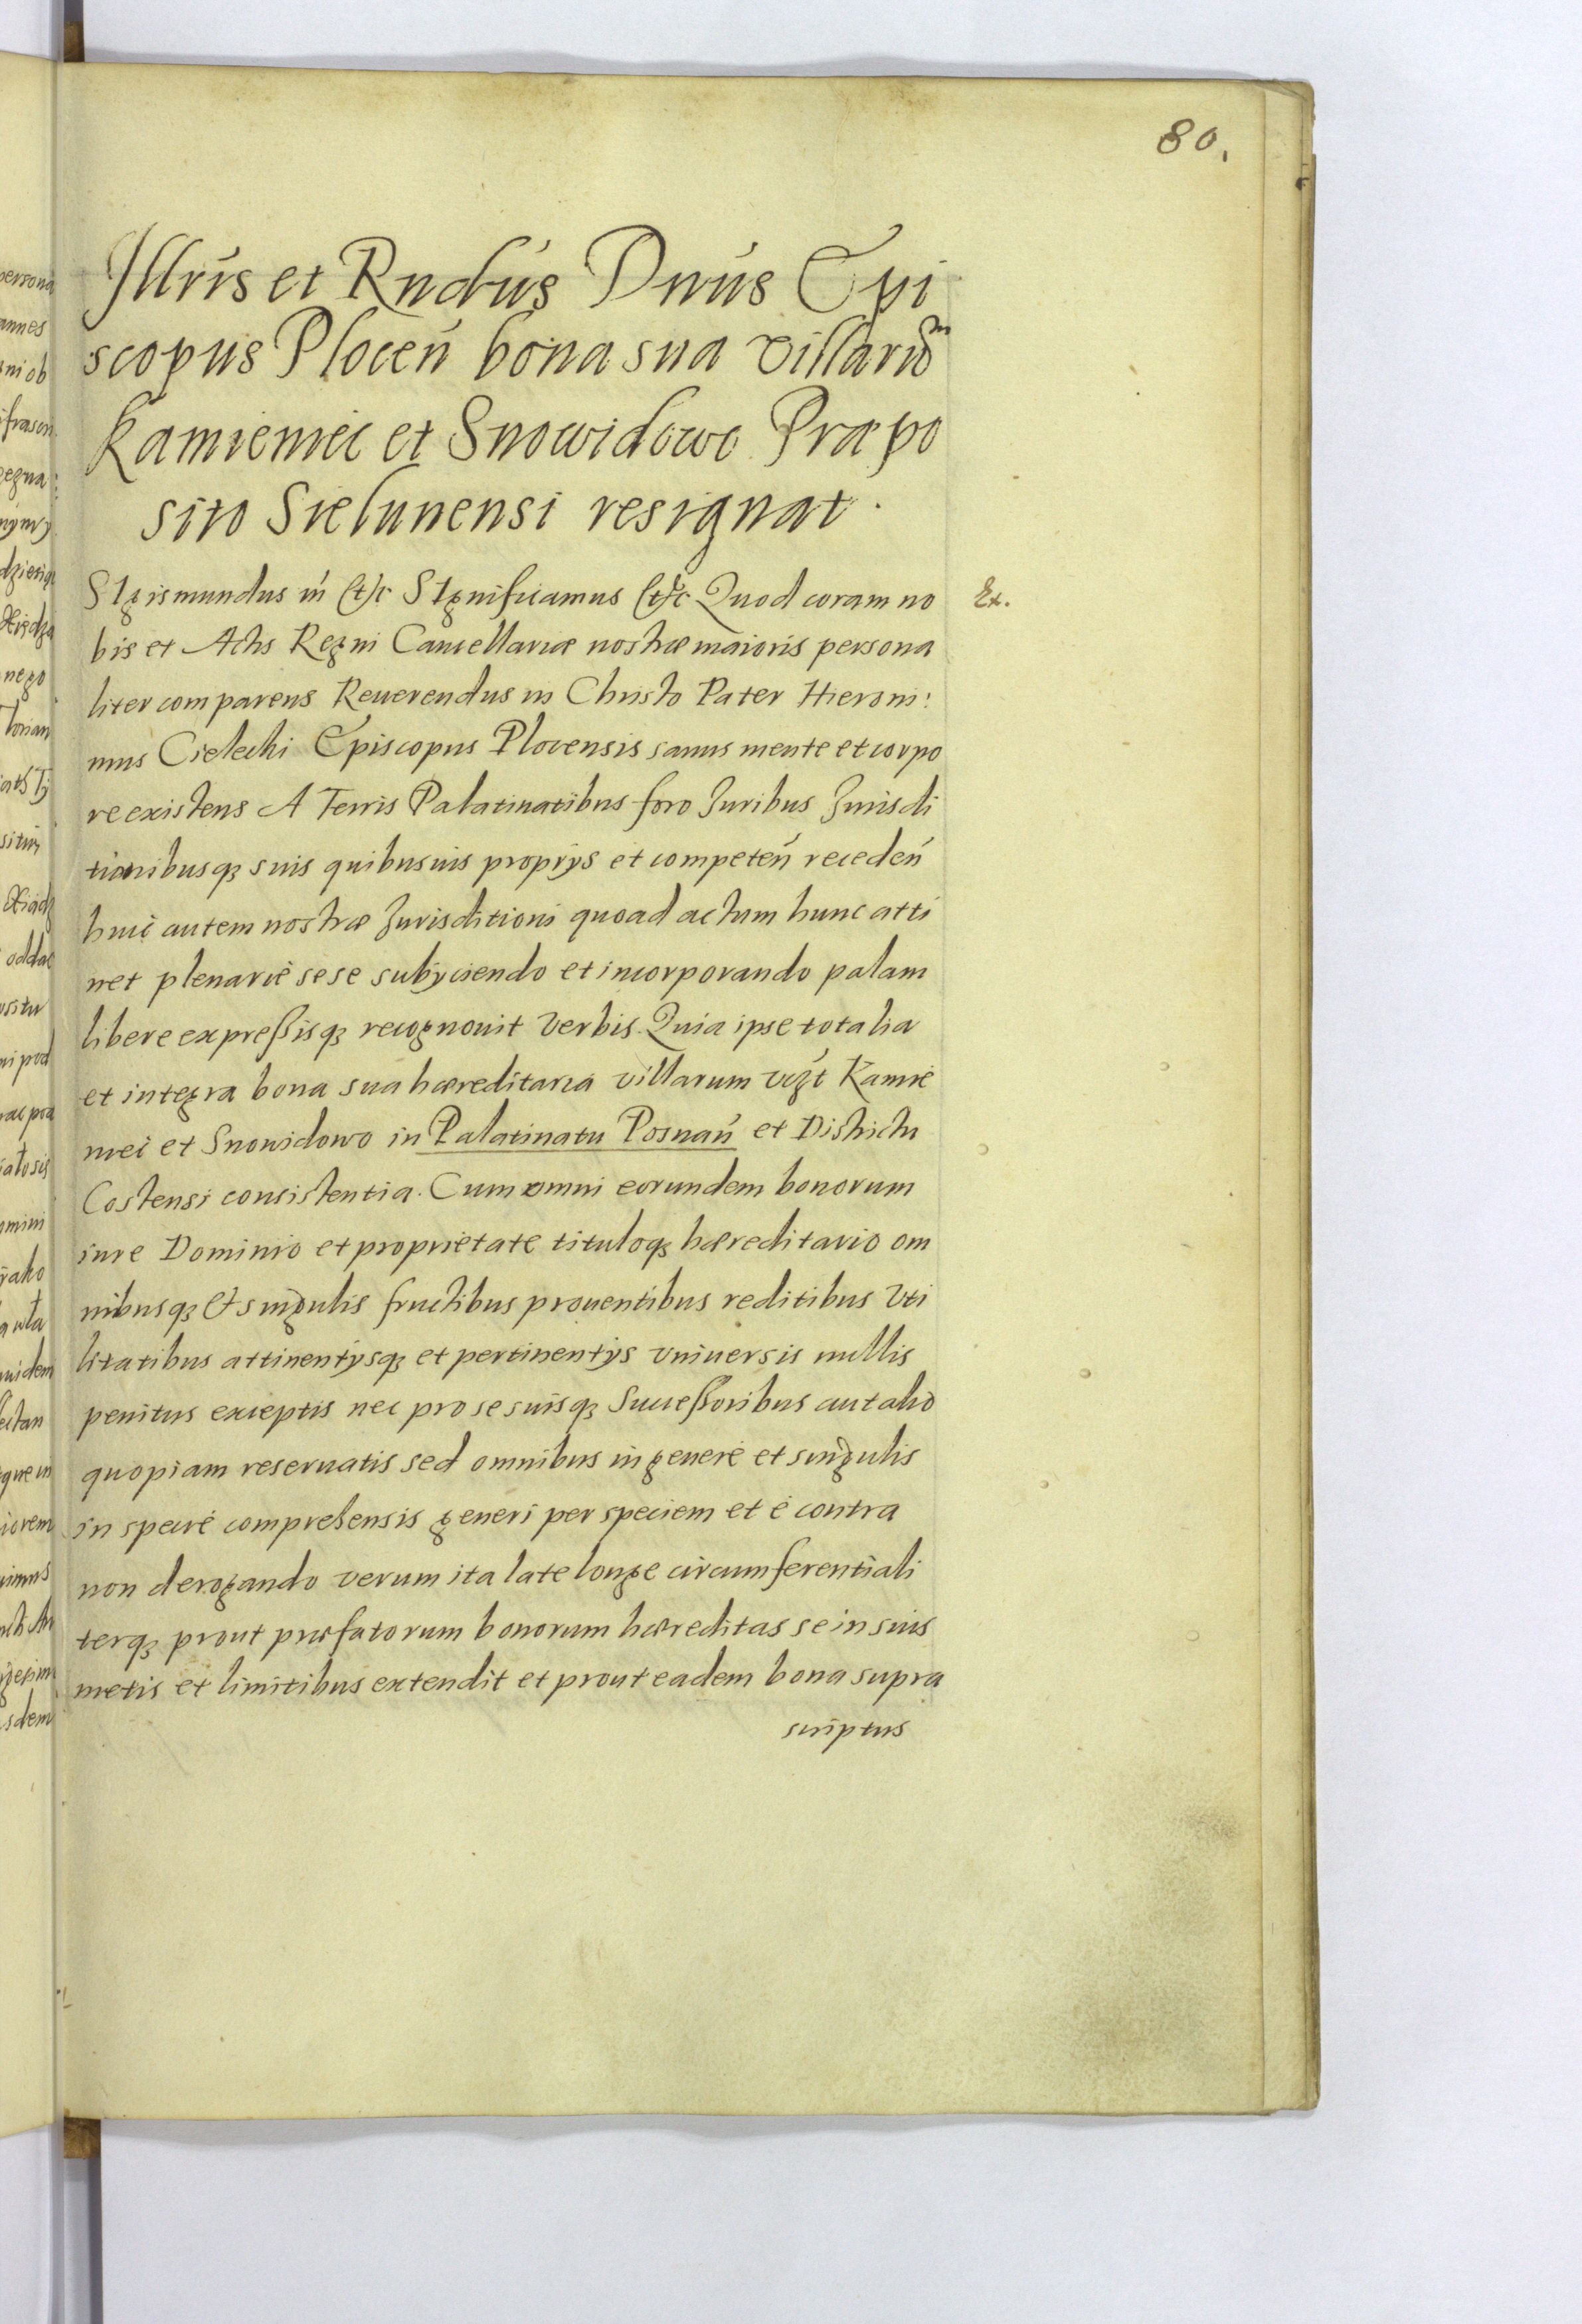 80.
Illris et Rndus Dnus Epi
scopus Plocen bona sua villaru
Kamieniec et Snowidowo Præpo
sito Sielunensi resignat.
SIgismundus III etc SIgnificamus etc Quod coram no
Ex.
bis et Actis Regni Cancellariæ nostræ maioris persona
liter comparens Reuerendus in Christo Pater Hieroni:
mus Cielecki Episcopus Plocensis sanus mente et corpo
re existens A Terris Palatinatibus foro Iuribus Iurisdi
tionibusq suis quibusuis proprijs et competen receden
huic autem nostræ Iurisditioni quoad actum hunc atti
net plenarie sese subijciendo et incorporando palam
libere expreßisq recognouit verbis. Quia ipse totalia
et integra bona sua hæreditaria villarum vizt Kamie
niec et Snowidowo in Palatinatu Posnan et Districtu
Costensi consistentia. Cum omni eorundem bonorum
iure Dominio et proprietate tituloq hæreditario om
nibusq et singulis fructibus prouentibus reditibus vti
litatibus attinentijsq et pertinentijs vniuersis nullis
penitus exceptis nec pro se suisq Succeßoribus aut alio
quopiam reseruatis sed omnibus in genere et singulis
in specie comprehensis generi per speciem et è contra
non derogando verum ita late longe circumferentiali
terq prout præfatorum bonorum hæreditas se in suis
metis et limitibus extendit et prout eadem bona supra
scriptus